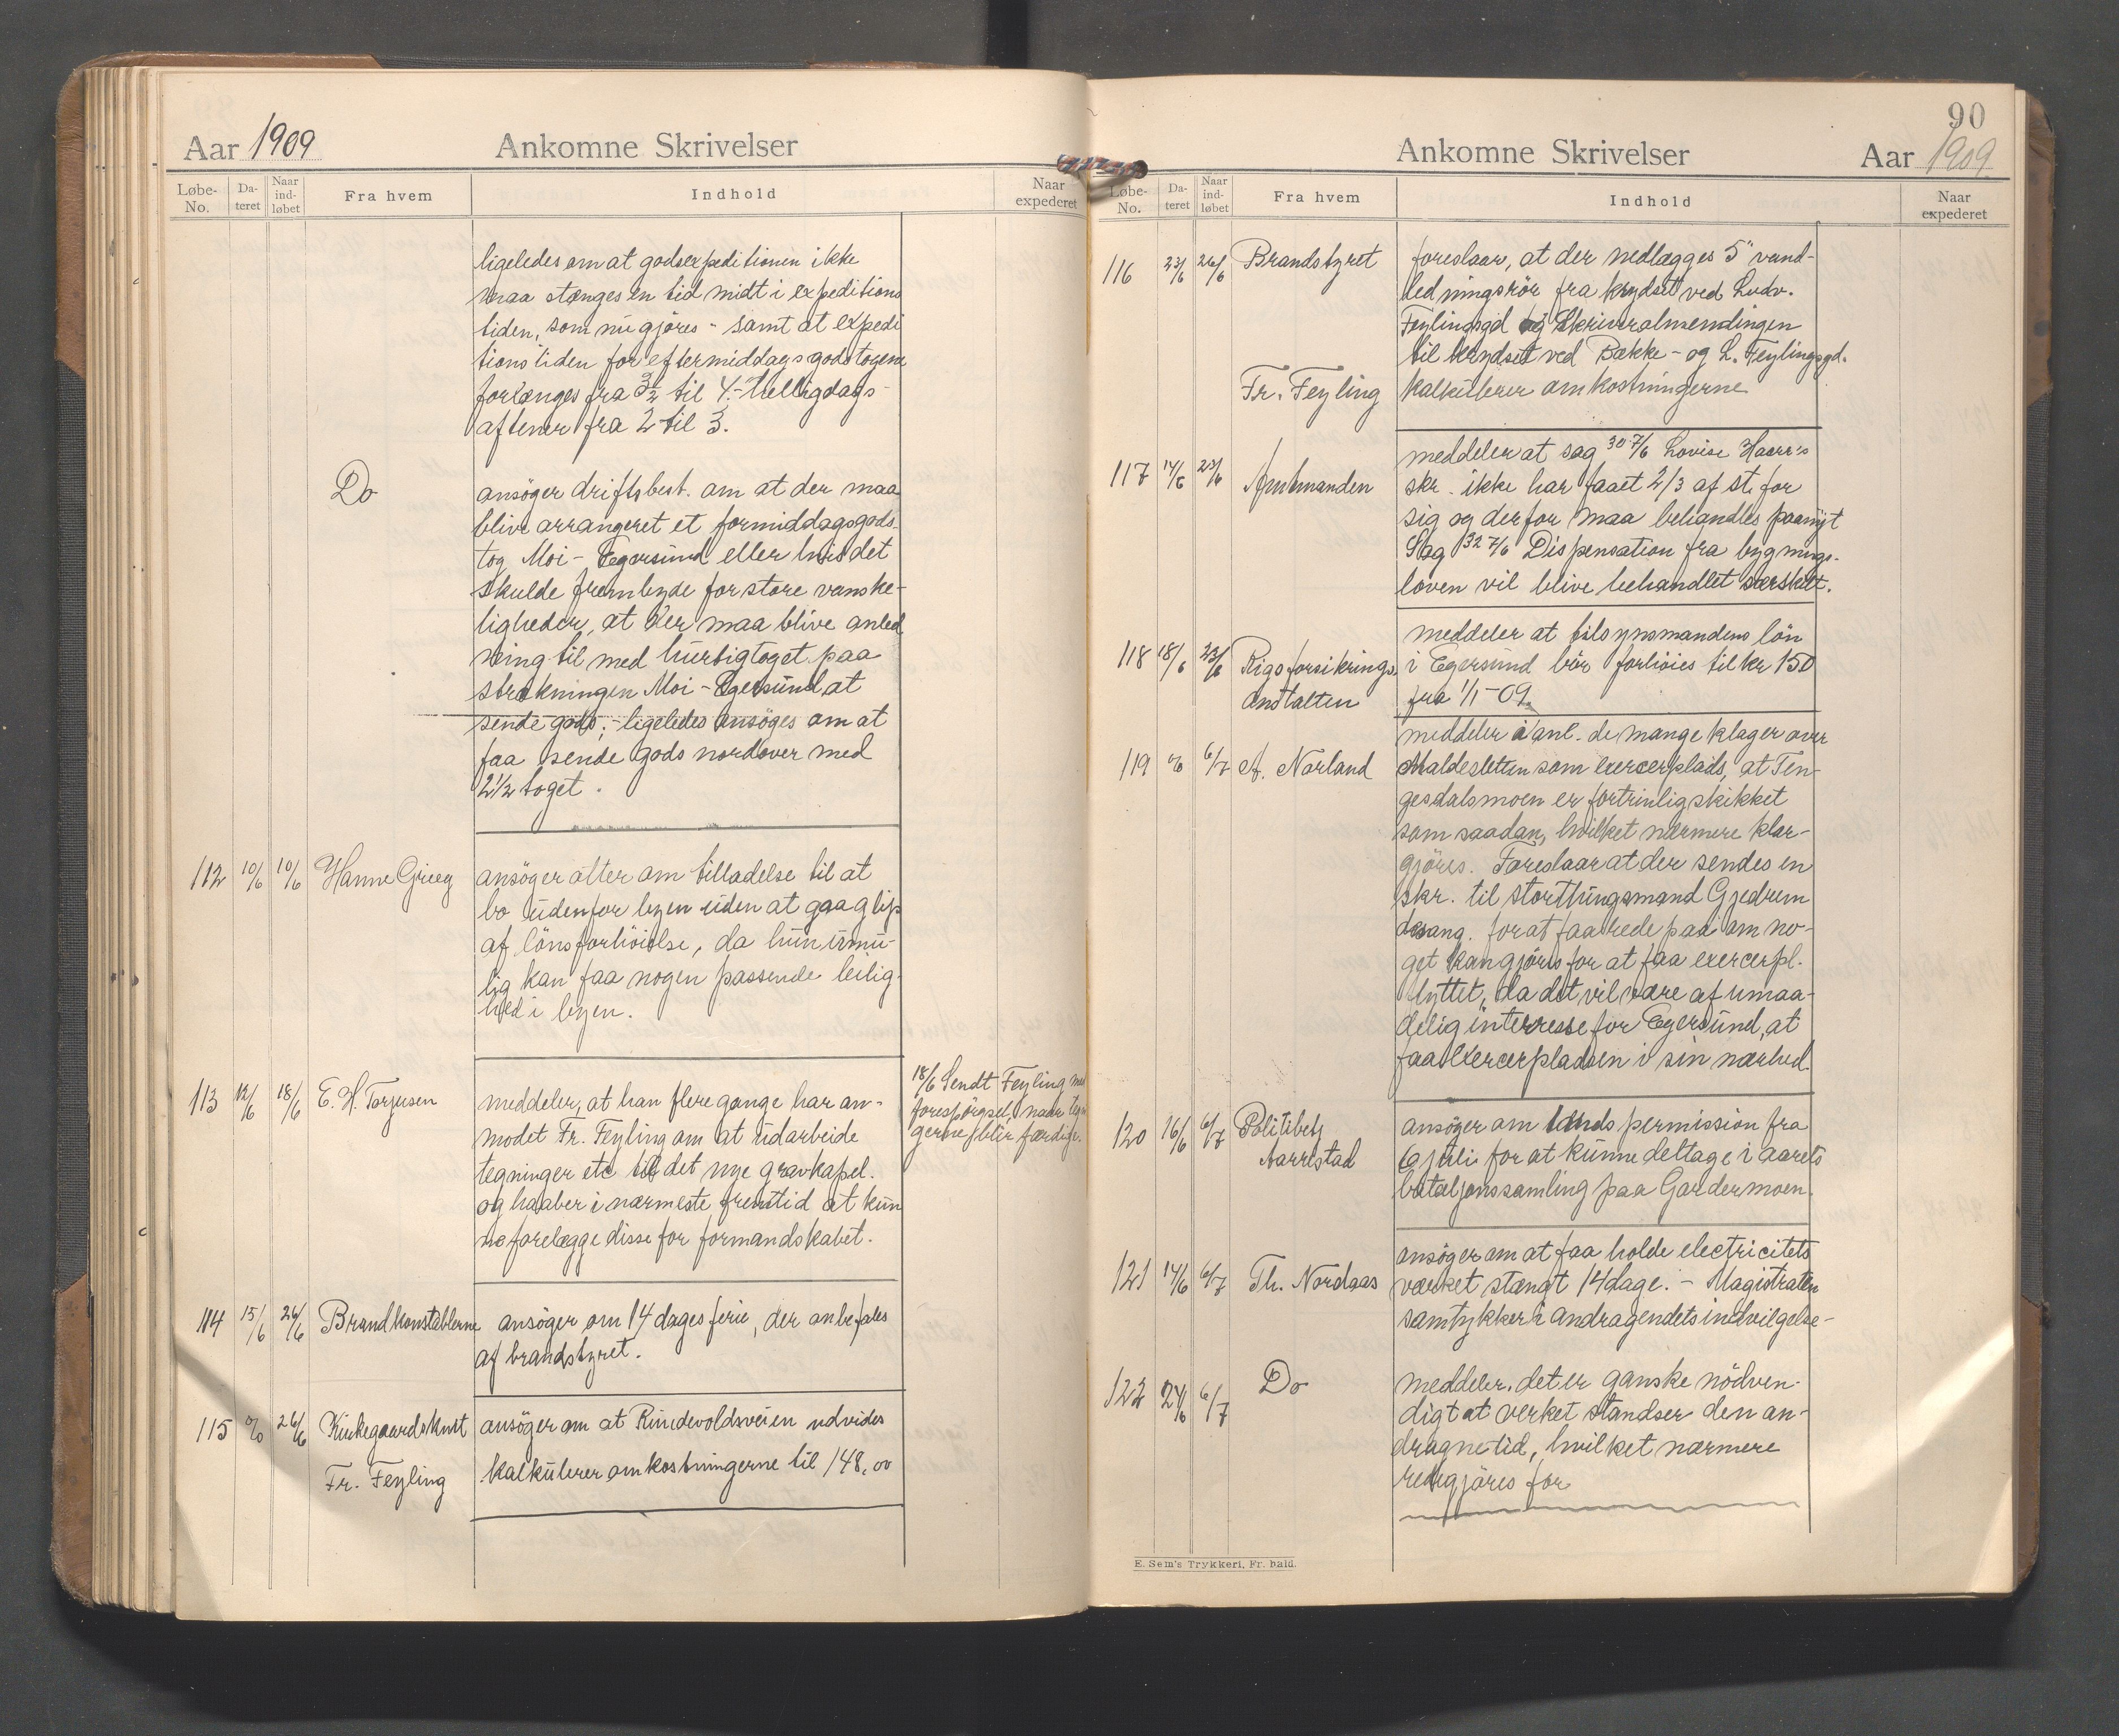 Aar 1909
Ankomne Skrivelser
Løbe-No.
Da-teret
Naar ind-løbet
Fra hvem
Indhold
Naar expederet
ligeledes om at godsexpeditionen ikke
maa stænges en tid midt i expeditions
tiden, som nu gjöres - samt at expedi
tionstiden for eftermiddagsgodstogene
forlænges fra 3½ til 4. - Helligdags-
aftener fra 2 til 3.
Do
ansöger driftsbest. om at der maa
blive arrangeret et formiddagsgods-
tog Moi - Egersund eller hvis det
skulde frembyde for store vanske-
ligheder, at der maa blive anled
ning til med hurtigtoget paa
strækningen Moi - Egersund at
sende gods; - ligeledes ansöges om at
faa sende gods nordover med
2½ toget.
112 10/6 10/6 Hanne Grieg
ansöger atter om tilladelse til at
bo udenfor byen uden at gaa glip
af lönsforhöielse, da hun umu-
lig kan faa nogen passende leilig-
hed i byen.
113 12/6 18/6 E. H. Torjusen
meddeler, at han flere gange har an-
modet Fr. Feyling om at udarbeide
tegninger etc til det nye gravkapel.
og haaber i nærmeste fremtid at kun
ne forelægge disse for formandskabet.
18/6 Sendt Feyling med
forespörgsel, naar tegn
gerne blir færdige.
114 15/6 26/6 Brandkonstablerne
ansöger om 14 dages ferie, der anbefales
af brandstyret.
115 % 26/6 Kirkegaardskmt
ansöger om at Rundevoldsveien udvides
Fr. Feyling
kalkulerer omkostningerne til 148,00
90
Ankomne Skrivelser
Aar 1909
Løbe-No.
Da-teret
Naar ind-løbet
Fra hvem
Indhold
Naar expederet
116 23/6 26/6 Brandstyret
foreslaar, at der nedlægges 5" vand-
ledningsrör fra krydset ved Ludv.
Feylingsgd og Skriveralmendingen
til krydset ved Bække- og L. Feylingsgd.
Fr. Feyling
kalkulerer omkostningerne
117 14/6 23/6 Amtmanden
meddeler at sag 30 7/6 Lovise Haarr's
skr. ikke har faaet 2/3 af st. for
sig og derfor maa behandles paanyt
Sag 32 7/6 Dispensation fra bygnings-
loven vil blive behandlet særskilt.
118 18/6 23/6 Rigsforsikrings
anstalten
meddeler at tilsynsmandens lön
i Egersund bör forhöies til kr 150
fra 1/1-09.
119 % 6/7 A. Norland
meddeler i anl. de mange klager over
Maldesletten som exercerplads, at Ten-
gesdalsmoen er fortrinlig skikket
som saadan, hvilket nærmere klar-
gjöres. Foreslaar at der sendes en
skr. til storthingsmand Gjedrem
desang. for at faa rede paa om no-
get kan gjöres for at faa exercerpl.
flyttet, da det vil være af umaa-
delig interresse for Egersund, at
faa Exercerpladsen i sin nærhed.
120 16/6 6/7 Politibetj
Aarrestad
ansöger om permission fra
6 juli for at kunne deltage i aarets
bataljonssamling paa Gardermoen.
121 14/6 6/7 Th. Nordaas
ansöger om at faa holde electricitets
værket stængt 14 dage. - Magistraten
samtykker i andragendets indvilgelse -
122 24/6 6/7 Do
meddeler, det er ganske nödven-
digt at verket standser den an-
dragne tid, hvilket nærmere
redegjöres for
E. Sem's Trykkeri, Fr. hald.